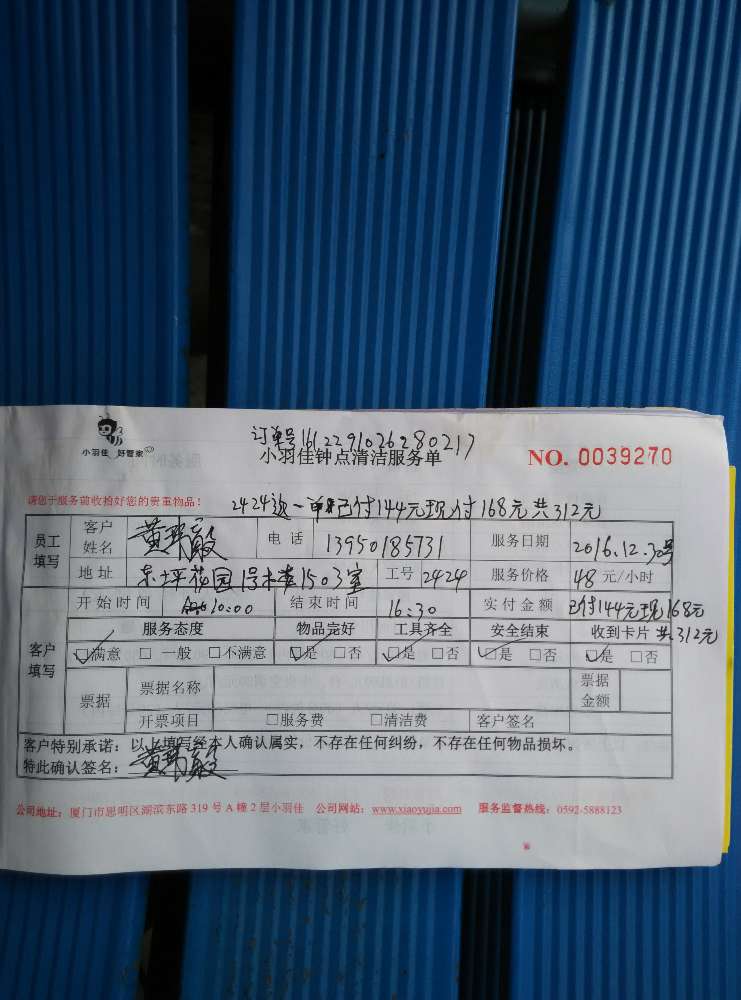 小羽佳 好管家
订单号1612291026280217
小羽佳钟点清洁服务单
NO. 0039270
请您于服务前收拾好您的贵重物品！
2424 一单已付144元现付168元共312元
员工填写 客户姓名 黄 毅 电话 13950185731 服务日期 2016.12.30号
地址 东坪花园 1503室 工号 2424 服务价格 48 元/小时
开始时间 10:00 结束时间 16:30 实付金额 已付144元现168元
共312元
客户填写 服务态度 物品完好 工具齐全 安全结束 收到卡片
☑满意 □ 一般 □不满意 ☑是 □否 ☑是 □否 ☑是 □否 ☑是 □否
票据 票据名称 票据金额
开票项目 □服务费 □清洁费 客户签名
客户特别承诺：以上填写经本人确认属实，不存在任何纠纷，不存在任何物品损坏。
特此确认签名： 黄 毅
公司地址：厦门市思明区湖滨东路 319 号 A 幢 2 层小羽佳 公司网站：www.xiaoyujia.com 服务监督热线：0592-5888123